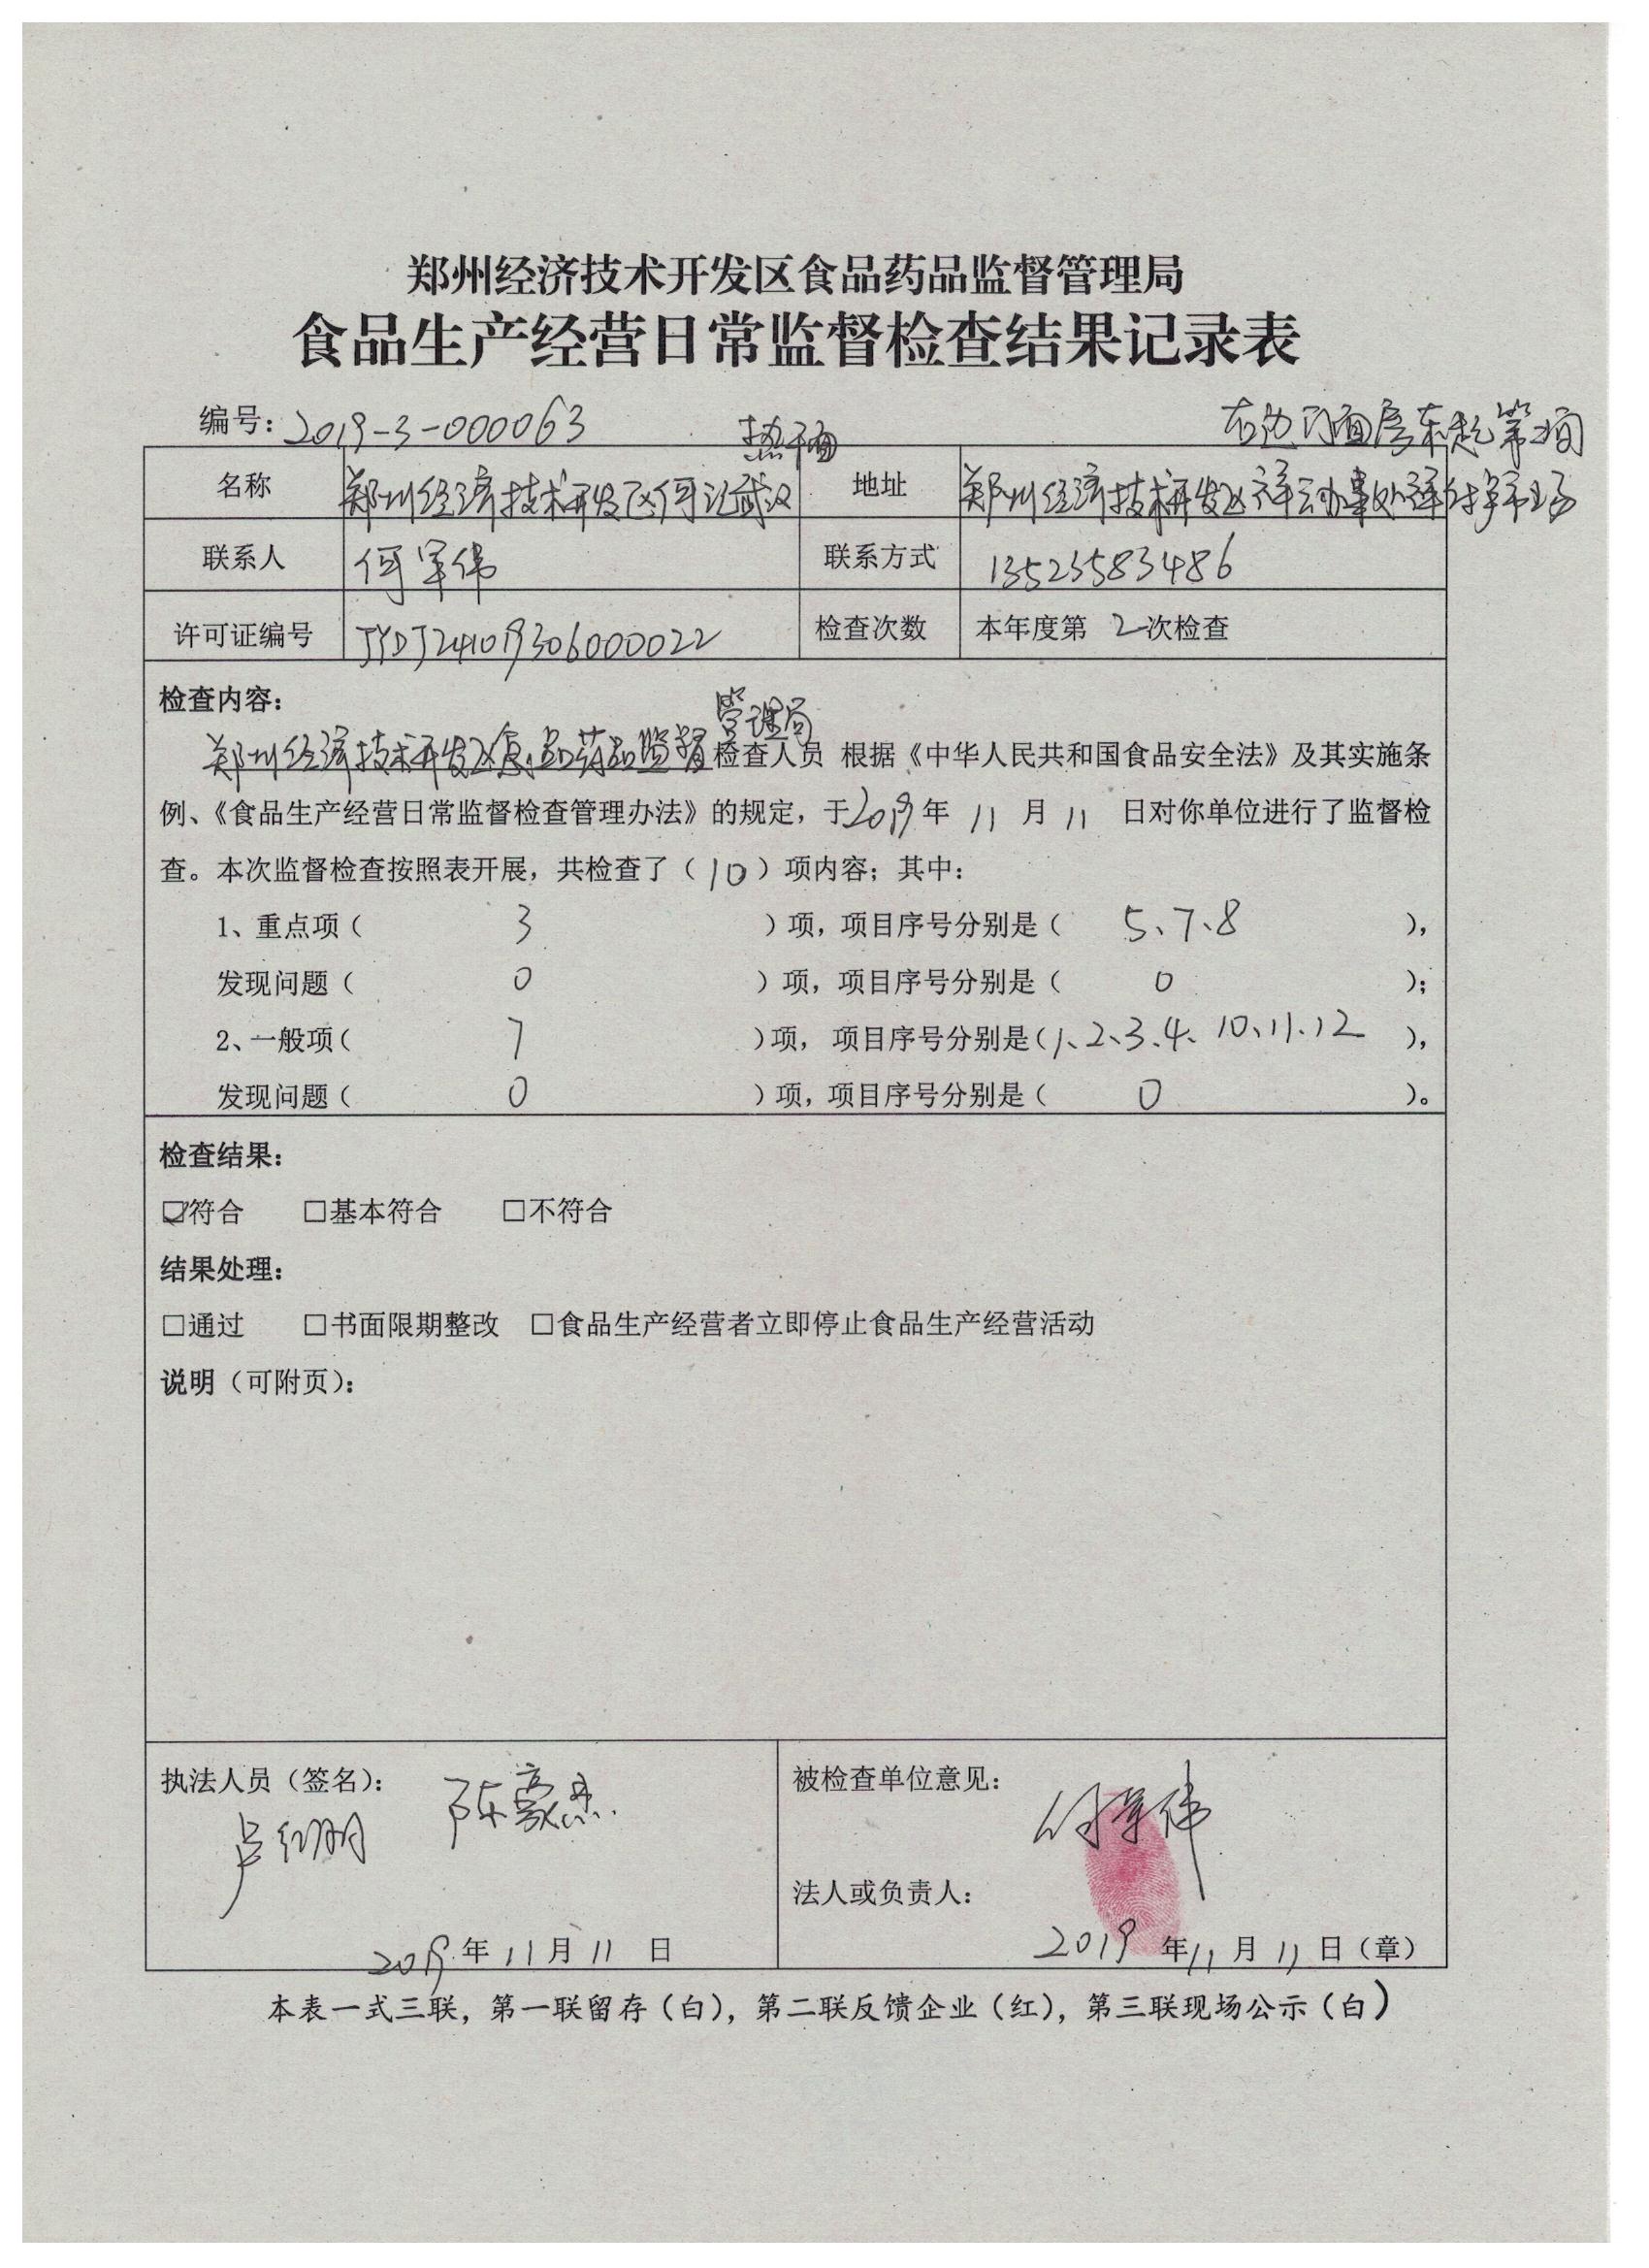 郑州经济技术开发区食品药品监督管理局
食品生产经营日常监督检查结果记录表
编号：2019-3-000063
热干面
右边门面房东起第2间
名称 郑州经济技术开发区何记武汉 地址 郑州经济技术开发区祥云办事处
联系人 何军伟 联系方式 13523583486
许可证编号 JYDJ241019306000022 检查次数 本年度第 2 次检查
检查内容：
管理局
郑州经济技术开发区食品药品监督检查人员 根据《中华人民共和国食品安全法》及其实施条
例、《食品生产经营日常监督检查管理办法》的规定，于2019年 11 月 11 日对你单位进行了监督检
查。本次监督检查按照表开展，共检查了（10）项内容；其中：
1、重点项（ 3 ）项，项目序号分别是（ 5、7、8 ），
发现问题（ 0 ）项，项目序号分别是（ 0 ）；
2、一般项（ 7 ）项， 项目序号分别是（1、2、3、4、10、11、12 ），
发现问题（ 0 ）项，项目序号分别是（ 0 ）。
检查结果：
☑符合 □基本符合 □不符合
结果处理：
□通过 □书面限期整改 □食品生产经营者立即停止食品生产经营活动
说明（可附页）：
执法人员（签名）： 陈豪杰
被检查单位意见： 何军伟
法人或负责人：
2019年 11 月 11 日
2019 年 11 月 11 日（章）
本表一式三联，第一联留存（白），第二联反馈企业（红），第三联现场公示（白）